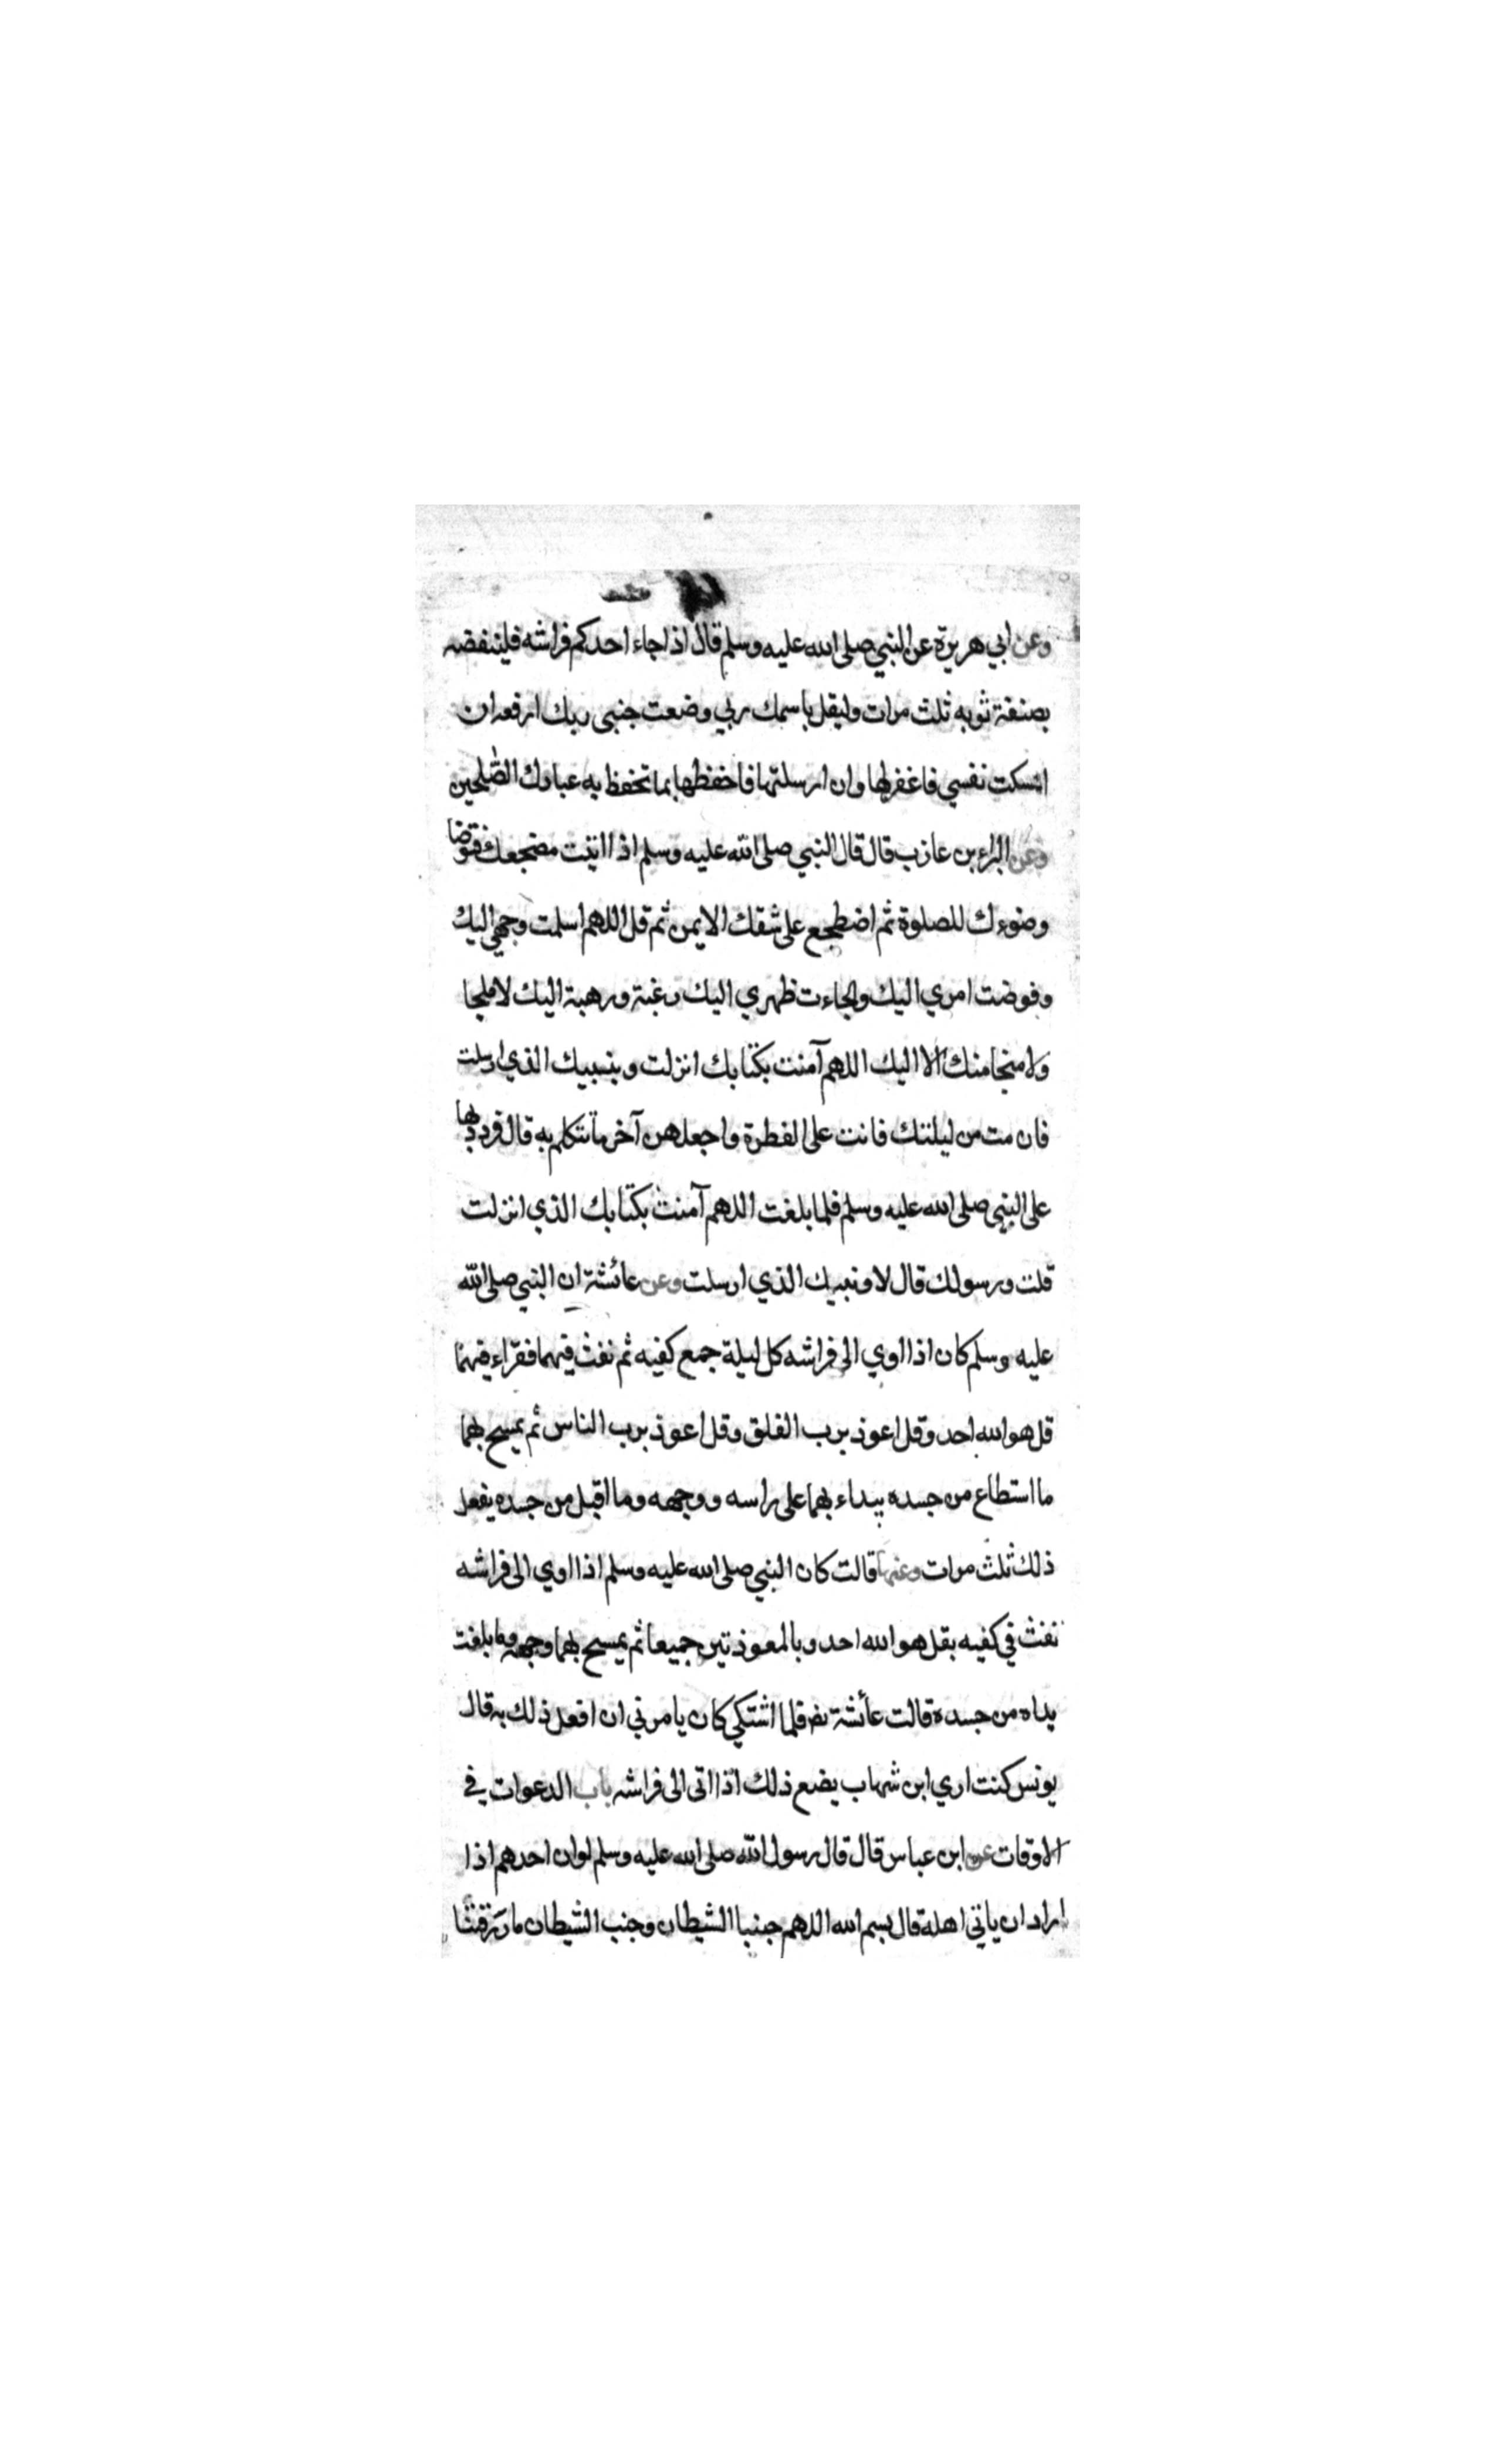 وعن ابي هريرة عن النبي صلى الله عليه وسلم قال اذا جاء احدكم فراشه فلينفضه
بصنفة ثوبه ثلث مرات وليقل باسمك ربي وضعت جنبي وبك ارفعه ان
امسكت نفسي فاغفرلها وان ارسلتها فاحفظها بما تحفظ به عبادك الصلحين
وعن البراء بن عازب قال قال النبي صلى الله عليه وسلم اذا اتيت مضجعك فتوضا
وضوءك للصلوة ثم اضطجع على شقك الايمن ثم قل اللهم اسلمت وجهي اليك
وفوضت امري اليك والجاءت ظهري اليك رغبة ورهبة اليك لا ملجا
ولا منجا منك الا اليك اللهم آمنت بكتابك انزلت وبنبيك الذي ارسلت
فان مت من ليلتك فانت على الفطرة واجعلهن آخر ما تتكلم به قال فرددتها
على النبي صلى الله عليه وسلم فلما بلغت اللهم آمنت بكتابك الذي انزلت
قلت ورسولك قال لا ونبيك الذي ارسلت وعن عائشة ان النبي صلى الله
عليه وسلم كان اذا اوي الى فراشه كل ليلة جمع كفيه ثم نفث فيهما فقراء فيهما
قل هو الله احد وقل اعوذ برب الفلق وقل اعوذ برب الناس ثم يمسح بهما
ما استطاع من جسده يبداء بهما على راسه ووجهه وما اقبل من جسده يفعل
ذلك ثلث مرات وعنها قالت كان النبي صلى الله عليه وسلم اذا اوي الى فراشه
نفث في كفيه بقل هو الله احد وبالمعوذتين جميعا ثم يمسح بهما وجهه وما بلغت
يداه من جسده قالت عائشة فلما اشتكي كان يامرني ان افعل ذلك به قال
يونس كنت اري ابن شهاب يضع ذلك اذا اتى الى فراشه باب الدعوات في
الاوقات عن ابن عباس قال قال رسول الله صلى الله عليه وسلم لو ان احدهم اذا
اراد ان ياتي اهله قال بسم الله اللهم جنبا الشيطان وجنب الشيطان ما رزقتنا